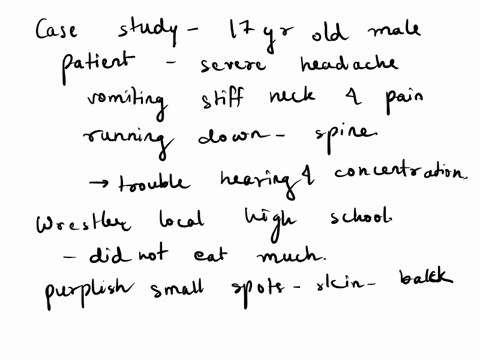 Case study - 17 yr old male
patient - severe headache
vomiting stiff neck & pain
running down - spine
→ trouble hearing & concentration
Wrestler local high school
- did not eat much.
purplish small spots - skin - back